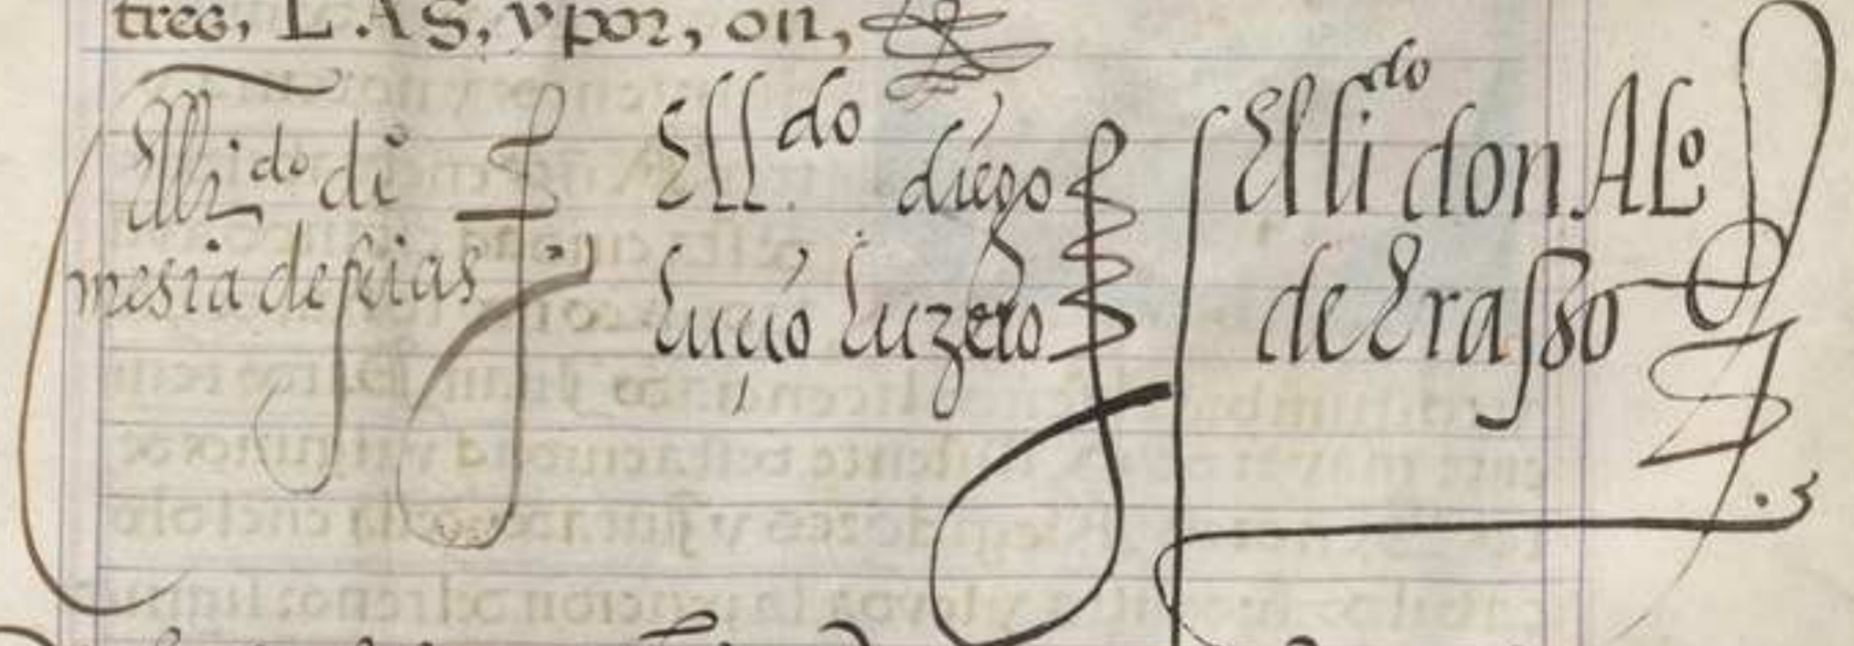 tres, LAS, y por, on,
El li^do di
mesia de frias
El l^do diego
Lucio Luzero
El li^do don Al^o
de Erasso